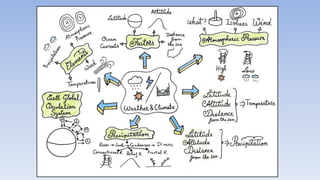 Latitude
Altitude
Ocean
Currents
Factors
Distance
from the sea
What?
Isobars
Wind
Atmospheric Pressure
High
Low
Atmospheric
Pressure
Precipitation
Elements
Winds
Temperature
Weather & Climate
Latitude
Altitude
Distance
from the sea
→ Temperature
Global
Circulation
System
Precipitation
Latitude
Altitude
Distance
from the sea
→ Precipitation
Rises → Cools → Condenses → It rains
Convectional R.
Relief R.
Frontal R.